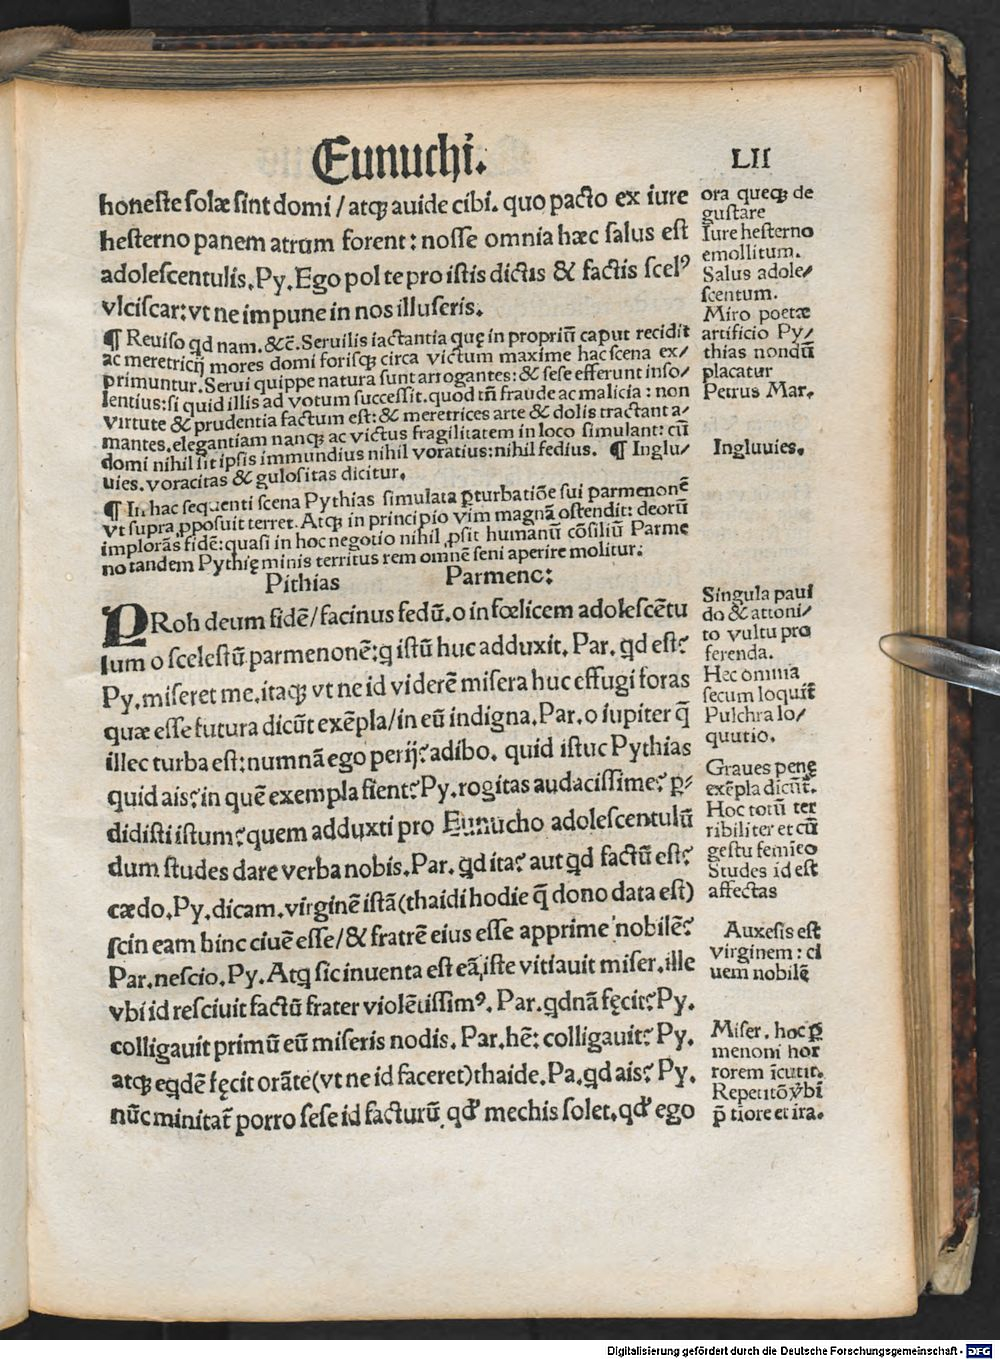 Eunuchi.
LII
honeste solæ sint domi / atqꝫ auide cibi. quo pacto ex iure
hesterno panem atrum forent: nosse omnia hæc salus est
adolescentulis. Py. Ego pol te pro istis dictis & factis scelꝰ
vlciscar: vt ne impune in nos illuseris.
¶ Reuiso qd nam. &c̄. Seruilis iactantia quę in propriū caput recidit
ac meretricij mores domi forisqꝫ circa victum maxime hac scena ex/
primuntur. Serui quippe natura sunt arrogantes: & sese efferunt inso/
lentius: si quid illis ad votum successit. quod tñ fraude ac malicia : non
virtute & prudentia factum est: & meretrices arte & dolis tractant a/
mantes. elegantiam nanqꝫ ac victus fragilitatem in loco simulant: cū
domi nihil sit ipsis immundius nihil voratius: nihil fedius. ¶ Inglu/
uies. voracitas & gulositas dicitur.
¶ In hac sequenti scena Pythias simulata ꝑturbatiōe sui parmenonē
vt supra ꝓposuit terret. Atqꝫ in principio vim magnā ostendit: deorū
implorās fidē: quasi in hoc negotio nihil ꝓsit humanū cōsiliū Parme
no tandem Pythię minis territus rem omnē seni aperire molitur.
Pithias Parmeno:
PRoh deum fidē / facinus fedū. o infœlicem adolescētu
lum o scelestū parmenonē: q istū huc adduxit. Par. qd est?
Py. miseret me. itaqꝫ vt ne id viderē misera huc effugi foras
quæ esse futura dicūt exēpla / in eū indigna. Par. o iupiter q̄
illec turba est: numnā ego perij? adibo. quid istuc Pythias
quid ais? in quē exempla fient? Py. rogitas audacissime? ꝑ/
didisti istum? quem adduxti pro Eunucho adolescentulū
dum studes dare verba nobis. Par. qd ita? aut qd factū est?
cædo. Py. dicam. virginē istā (thaidi hodie q̄ dono data est)
scin eam hinc ciuē esse / & fratrē eius esse apprime nobilē?
Par. nescio. Py. Atq sic inuenta est eā, iste vitiauit miser. ille
vbi id resciuit factū frater violētissimꝰ. Par. qdnā fęcit? Py.
colligauit primū eū miseris nodis. Par. hē: colligauit? Py.
atqꝫ eqdē fęcit orāte (vt ne id faceret) thaide. Pa. qd ais? Py.
nūc minitat̄ porro sese id facturū, qd' mechis solet. qd' ego
ora queqꝫ de
gustare
Iure hesterno
emollitum.
Salus adole/
scentum.
Miro poetæ
artificio Py/
thias nondū
placatur
Petrus Mar.
Ingluuies.
Singula paui
do & attoni/
to vultu pro
ferenda.
Hec omnia
secum loquit̄
Pulchra lo/
quutio.
Graues penę
exēpla dicūt.
Hoc totū ter
ribiliter et cū
gestu femīeo
Studes id est
affectas
Auxesis est
virginem : ci
uem nobilē
Miser. hoc ꝑ
menoni hor
rorem īcutit.
Repetitō v̄bi
p̄ tiore et ira.
Digitalisierung gefördert durch die Deutsche Forschungsgemeinschaft - DFG